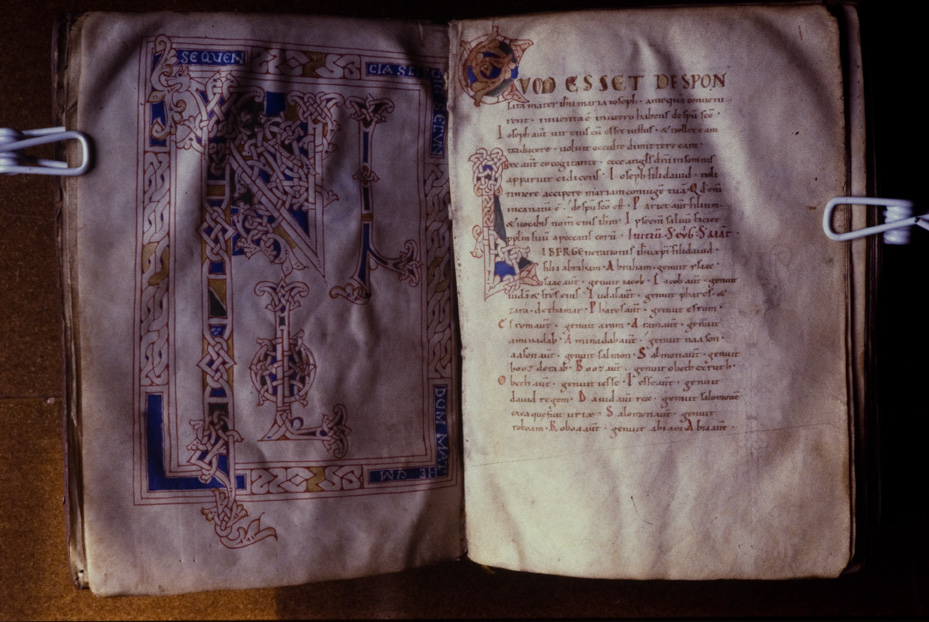 SEQUEN
CIA S
DUM MAT
HEUM
QUOD ESSET DESPON
sata mater ihu maria ioseph · antequā conveni
rent · inventa ē in utero habens de spū scō ·
Ioseph aūt vir eius cū esset iustus · & nollet eam
traducere · voluit occulte dimittere eam ·
Hec aūt eo cogitante · ecce angls dni in somnis
apparuit ei dicens · Ioseph fili david · noli
timere accipere mariam coniugē tuā · Qd enī
in ea natū ē · de spū scō ē · Pariet aūt filium ·
& vocabis nom̄ eius ihm · Ipse enī salvū faciet
pplm suū a peccatis eorū ·
LIBER GENerationis ihu xpi filii david ·
filii abraham · Abraham · genuit ysaac
ysaac aūt · genuit iacob · Iacob aūt · genuit
iudā & frēs eius · Iudas aūt · genuit phares · &
zara · de thamar · Phares aūt · genuit esrom ·
Esrom aūt · genuit aram · Aram aūt · genuit
aminadab · Aminadab aūt · genuit naason ·
Naason aūt · genuit salmon · Salmon aūt · genuit
booz de raab · Booz aūt · genuit obeth ex ruth ·
Obeth aūt · genuit iesse · Iesse aūt · genuit
david regem · David aūt rex · genuit salomonē
ex ea que fuit uriæ · Salomon aūt · genuit
roboam · Roboā aūt · genuit abiam · Abia aūt ·